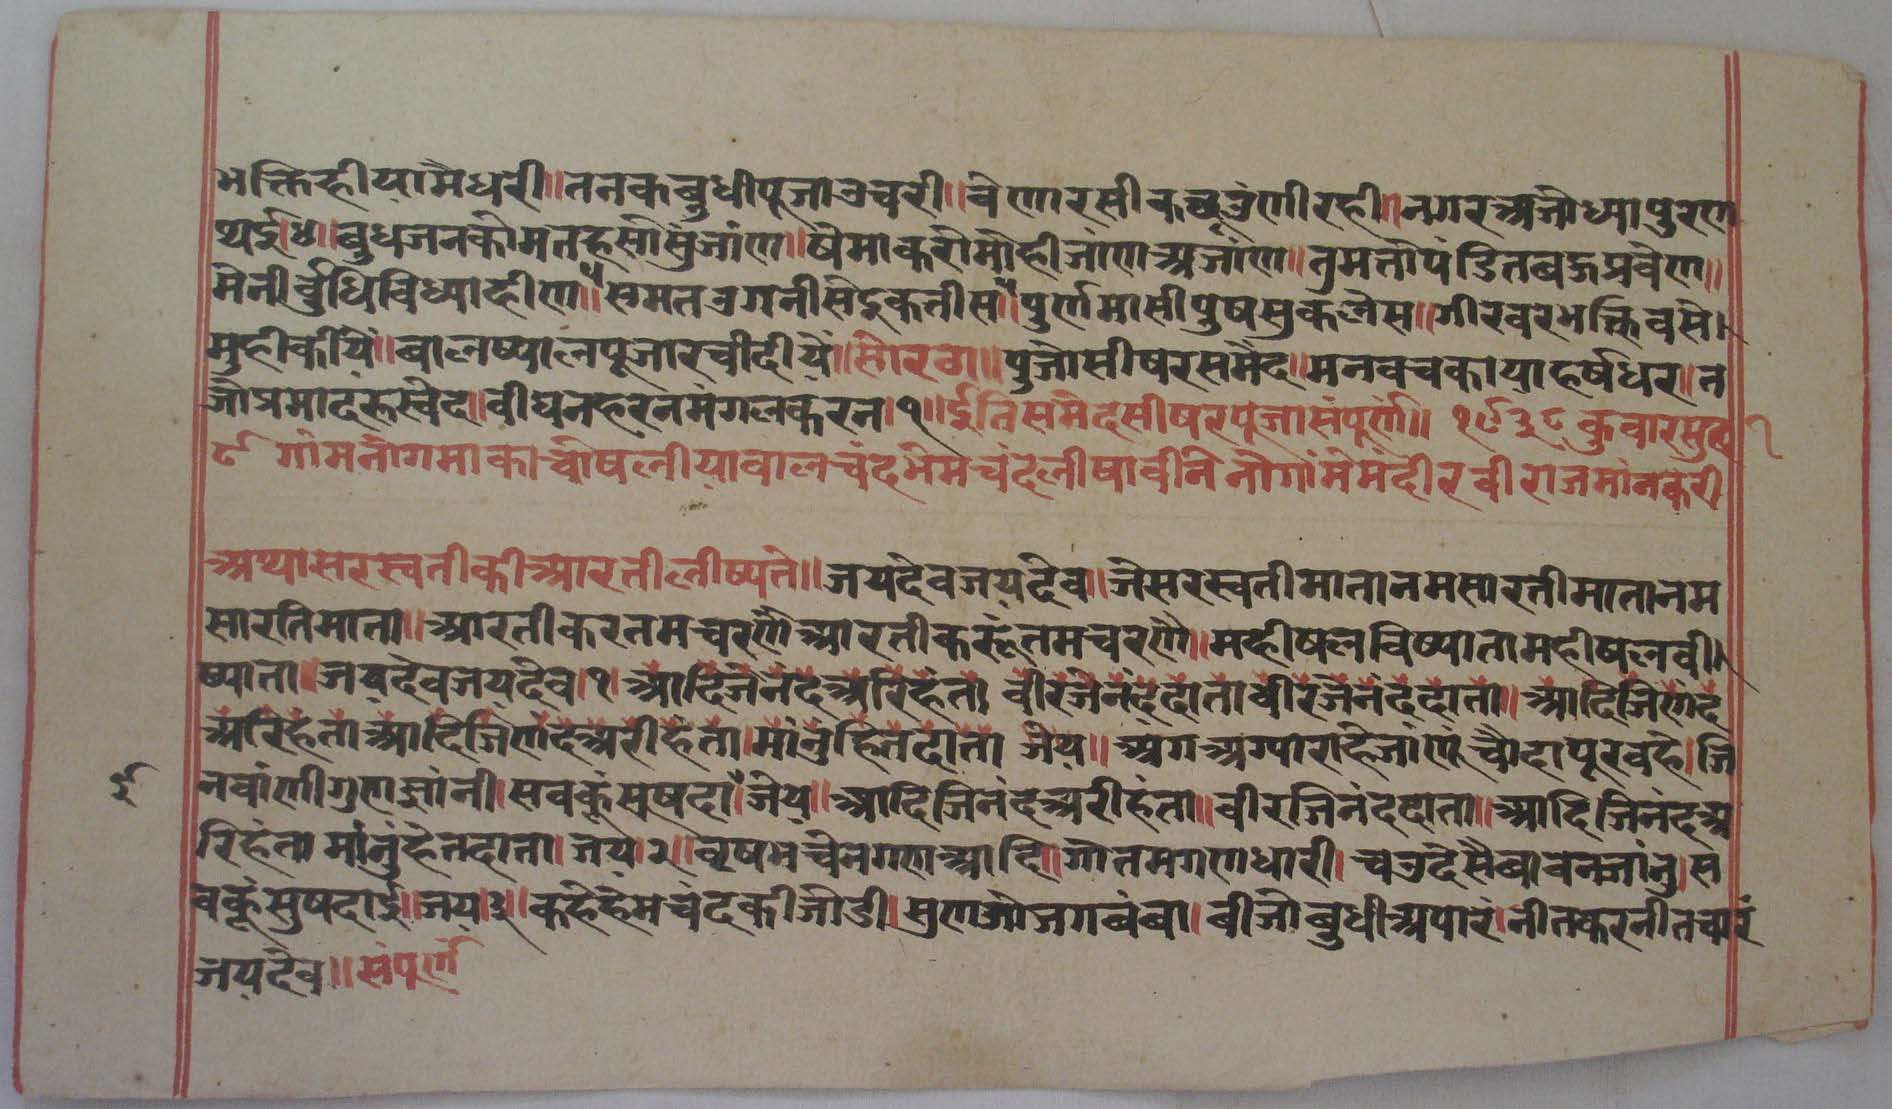 भक्तिहीयामैधरी॥तनकबुधीपूजाउचरी॥वेणरसीकछूउंणीरही॥नगरअजोध्यापुरण
थई॥४॥बुधजनकौमतहसौसुंजांण॥षैमाकरौमोहीजांणअजांण॥तुमतौपंडितबहुप्रवैण॥
मैनीर्बुधिविध्याहीण॥५॥समतउगनीसैइकतीस॥पुर्णमासीपुषसुकलेस॥गीरवरभक्तिवसे।
मुहीकीयें॥बालष्यालपूजारचीदीयें॥सोरठा॥पुजोसीषरसमैद॥मनवचकायाहर्षधर॥न
जौप्रमादरुस्वेद॥वीघनहरनमंगलकरन।१॥ईतिसमैदसीषरपूजासंपूर्ण॥१९३९कुवारसुद
८गांमनौगमाकाचोषलीयावालचंदभेमचंदलीषावीनेनोगांमेमंदीरवीराजमांनकरी
अथ्यासरस्वतीकीआरतीलीष्यते॥जयदेवजयदेव॥जैसरस्वतीमातानमसारतीमातानम
सारतिमाता॥आरतीकरतमचरणैआरतीकरूंतमचरणै॥महीषलविष्यातामहीषलवी।
ष्याता॥जयदेवजयदेव।१।आदिजेनंदअरिहंता।वीरजेनंददातावीरजेनंददाता॥आदिजिणंद
अरिहंताआदिजिणंदअरीहंता।मांनुहितदाता।जेय॥अंगअग्याराहेजांणूंचौदापूरवहे।जि
नवांणीगुणज्ञांनी।सवकूंसुषदा॥जेय॥आदिजिनंदअरीहंता॥वीरजिनंददाता॥आदिजिनंदअ
ई
रिहंतामांनुंहेतदाता।जय।२॥वृषभचेनगणआदि॥गौतमगणधारी।चउदेसैबावनजांनु।स
वकूंसुषदाई॥जय।३॥कहेहेमचंदकीजोडी।सुणजोजगबंबा।बीजोबुधीअपारं।नीतकरनीतवारं
जयदेव॥संपूर्ण